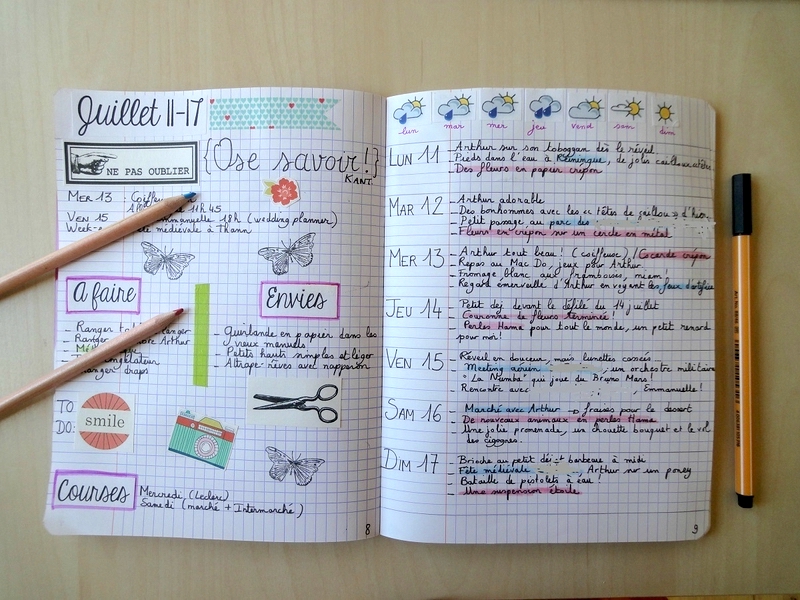 Juillet 11-17
NE PAS OUBLIER
{Ose savoir!}
KANT.
MER 13
11h45
VEN 15 18h (wedding planner)
médiévale à Thann
A faire
Envies
Ranger
Ranger Arthur
draps
Guirlande en papier dans les
vieux manuels
Petits hauts simples et léger
Attrape-rêves avec napperon
TO
DO:
smile
Courses
Mercredi (Leclerc)
Samedi (marché + Intermarché)
8
lun mar mer jeu vend sam dim
LUN 11
Arthur sur son toboggan dès le réveil
Pieds dans l'eau à de jolis cailloux
Des fleurs en papier crépon
MAR 12
Arthur adorable
Des bonhommes avec les « têtes de
Petit passage au parc des
Fleurs en crépon sur un cercle en métal
MER 13
Arthur tout beau! (coiffeuse) / Cocarde crépon
Repas au Mac Do, jeux pour Arthur
Fromage blanc aux framboises, miem!
Regard émerveillé d'Arthur en voyant les feux d'artifice
JEU 14
Petit dej devant le défilé du 14 juillet
Couronne de fleurs terminée!
Perles Hama pour tout le monde, un petit renard
pour moi!
VEN 15
Réveil en douceur, mais lunettes cassées
Meeting aérien , un orchestre militaire
"La Numba" qui joue du Bruno Mars!
Rencontre avec , Emmanuelle!
SAM 16
Marché avec Arthur → fraises pour le dessert
De nouveaux animaux en perles Hama
Une jolie promenade, un chouette bouquet et le vol
des cigognes.
DIM 17
Brioche au petit déj + barbecue à midi
Fête médiévale Arthur sur un poney
Bataille de pistolets à eau!
Une suspension étoile
9